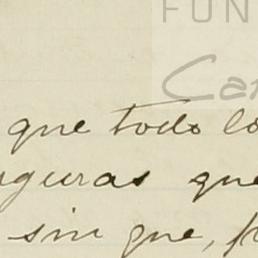 FUN
Car
que todo lo
guras que
sin que, p